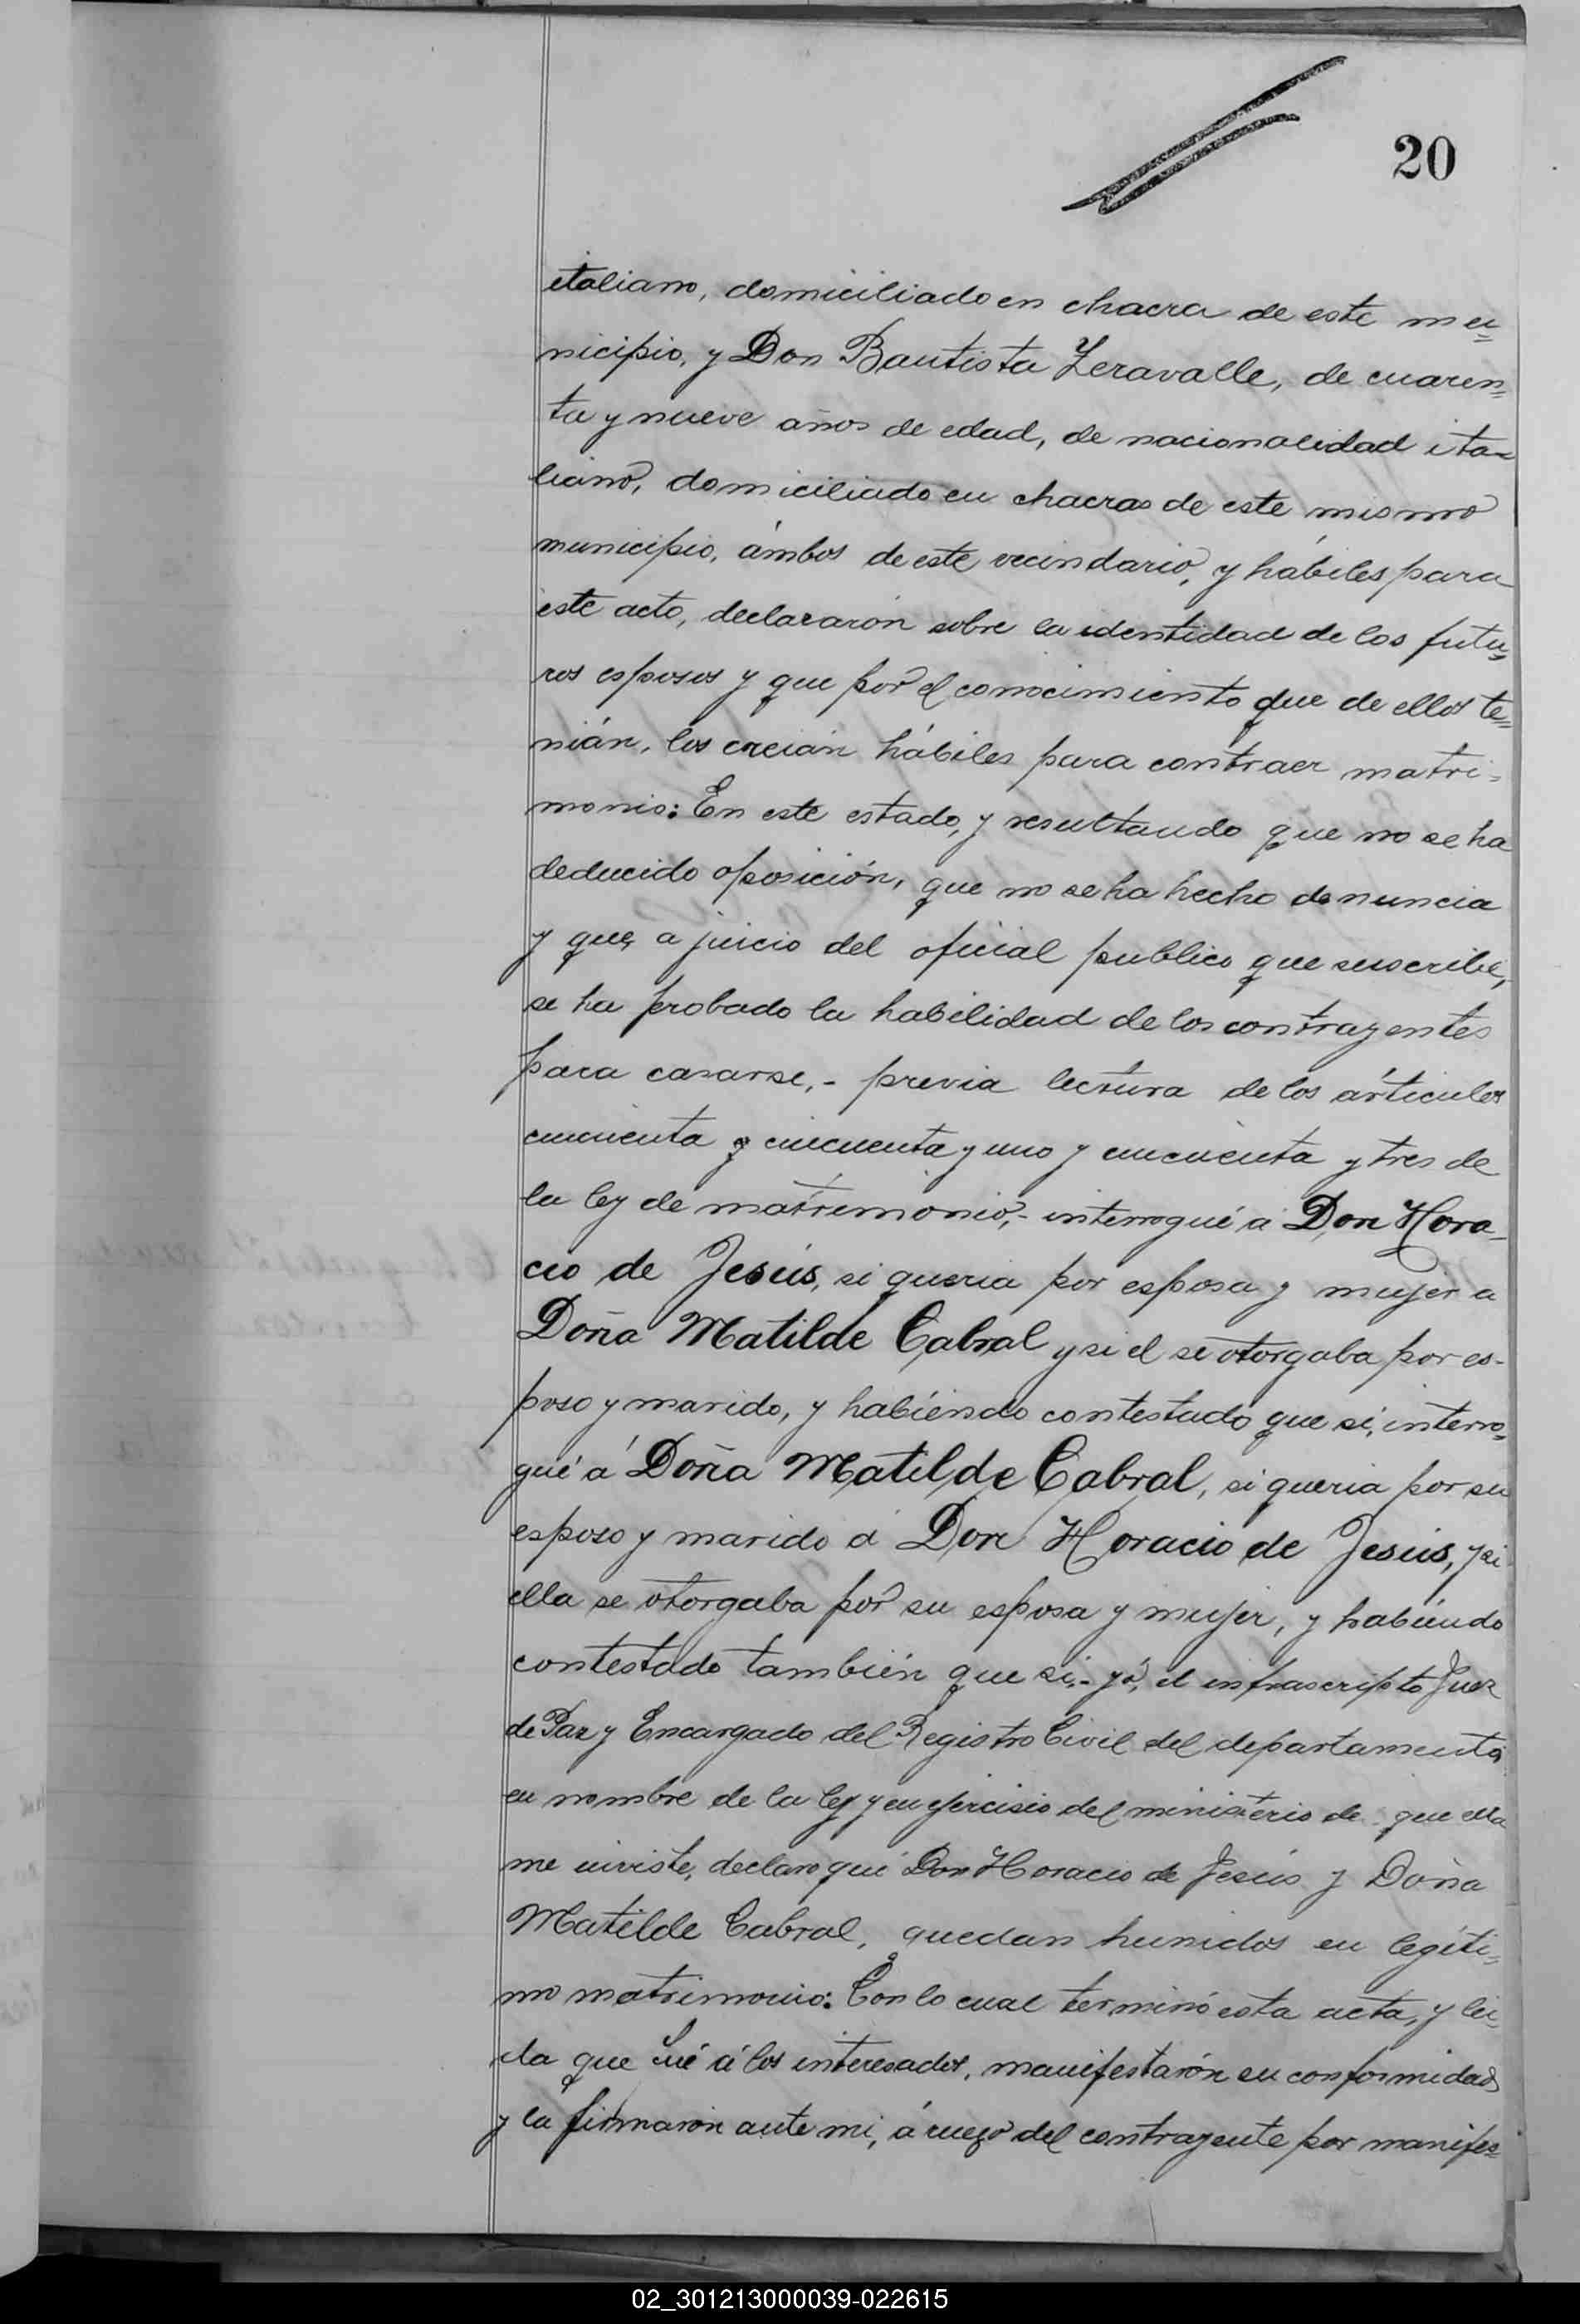 20
italiano, domiciliado en chacra de este mu=
nicipio, y Don Bautista Zeravalle, de cuaren=
ta y nueve años de edad, de nacionalidad ita-
liano, domiciliado en chacras de este mismo
municipio, ámbos de este vecindario, y hábiles para
este acto, declararón sobre la identidad de los futu=
ros esposos y que por el conocimiento que de ellos te=
nián, los creián hábiles para contraer matri=
monio: En este estado, y resultando que no se ha
deducido oposición, que no se ha hecho denuncia
y que, a juicio del oficial publico que suscribe,
se ha probado la habilidad de los contrayentes
para casarse,- previa lectura de los árticulos
cincuenta y cincuenta y uno y cincuenta y tres de
la ley de matrimonio,- interrogué a Don Hora-
cio de Jesús, si queria por esposa y mujer a
Doña Matilde Cabral y si el se otorgaba por es-
poso y marido, y habiéndo contestado que si, interro=
gué á Doña Matilde Cabral, si queria por su
esposo y marido á Don Horacio de Jesús, y si
ella se otorgaba por su esposa y mujer, y habiéndo
contestado también que si,- yó, el infrascripto Juez
de Paz y Encargado del Registro Civil del departamento
en nombre de la ley y en ejercisio del ministerio de que ella
me inviste, declaro qué Don Horacio de Jesús y Doña
Matilde Cabral, quedan hunidos en legiti=
mo matrimonio: Con lo cual terminó esta acta, y lei=
da que fué á los interesados, manifestarón su conformidad
y la firmarón ante mi, á ruego del contrayente por manifes=
02_301213000039-022615